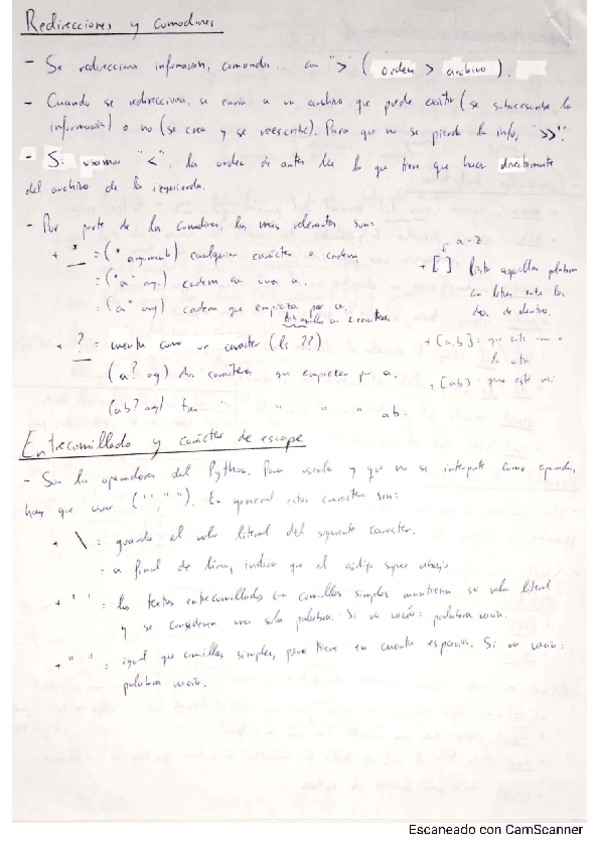 Redirecciones y comodines
- Se redirecciona información, comandos... con ">" ( orden > archivo ).
- Cuando se redirecciona, se envía a un archivo que puede existir (se sobreescribe la
información) o no (se crea y se reescribe). Para que no se pierda la info, ">>".
- Si usamos "<", la orden de antes lee lo que tiene que hacer directamente
del archivo de la izquierda.
- Por parte de los comodines, los más relevantes son:
+ * = (* argumento) cualquier carácter o cadena
= (*a* arg.) cadena con una a.
= (a* arg) cadena que empieza por a.
+ ? = cuenta como un caracter (ls ??)
(a? arg) dos caracteres que empiecen por a.
(ab? arg) tres " " " " ab.
a-z
+ [ ] : lista aquellas palabras
con letras entre las
dos de dentro.
+ [a,b] : que esté una o
la otra
+ [ab] : que esté
Entrecomillado y carácter de escape
- Son los operadores del Python. Para usarlo y que no se interprete como operador,
hay que usar (' ', " "). En general estos caracteres son:
+ \ = guarda el valor literal del siguiente caracter.
= a final de línea, indica que el código sigue abajo
+ ' ' = los textos entrecomillados con comillas simples mantienen su valor literal
y se consideran una sola palabra. Si va vacío: palabra vacía.
+ " " = igual que comillas simples, pero tiene en cuenta espacios. Si va vacío:
palabra vacía.
Escaneado con CamScanner